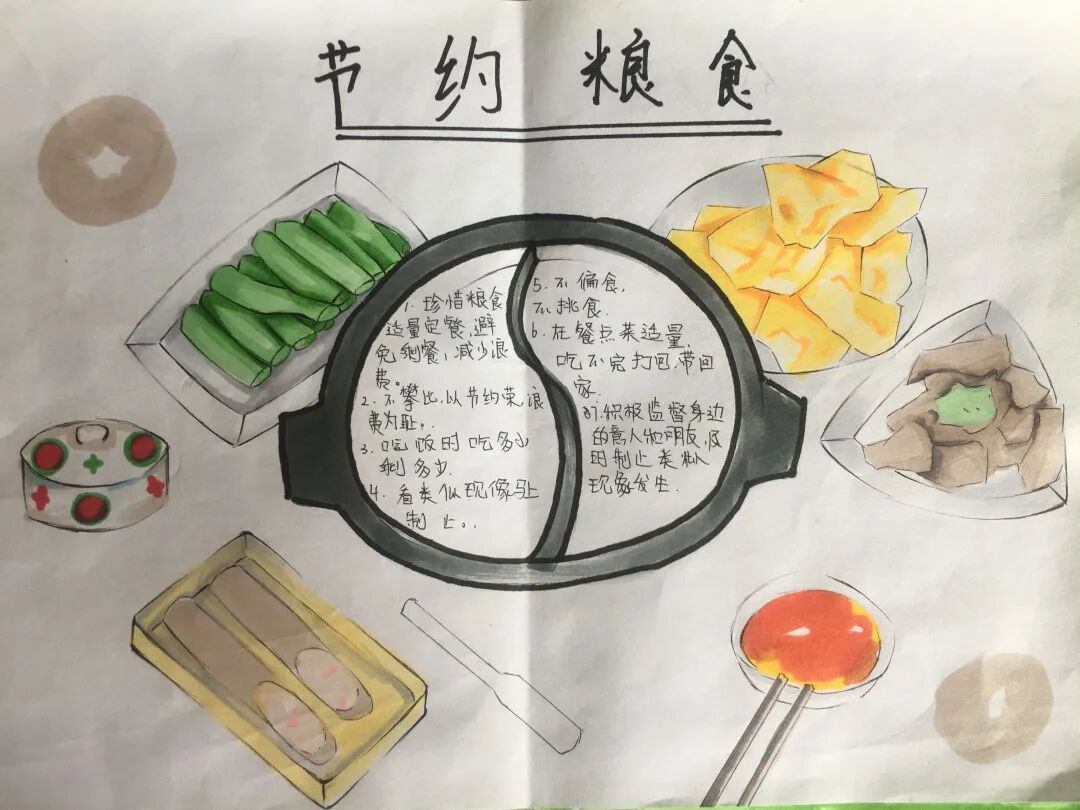 节约粮食
1. 珍惜粮食
适量定餐,避
免剩餐,减少浪
费。
2. 不攀比,以节约荣,浪
费为耻。
3. 吃饭时吃多少
剩多少
4. 看类似现像马上
制止。
5. 不偏食,
不挑食.
6. 在餐点菜适量,
吃不完打包,带回
家.
7. 积极监督身边
的人和朋友,及
时制止类似
现象发生.